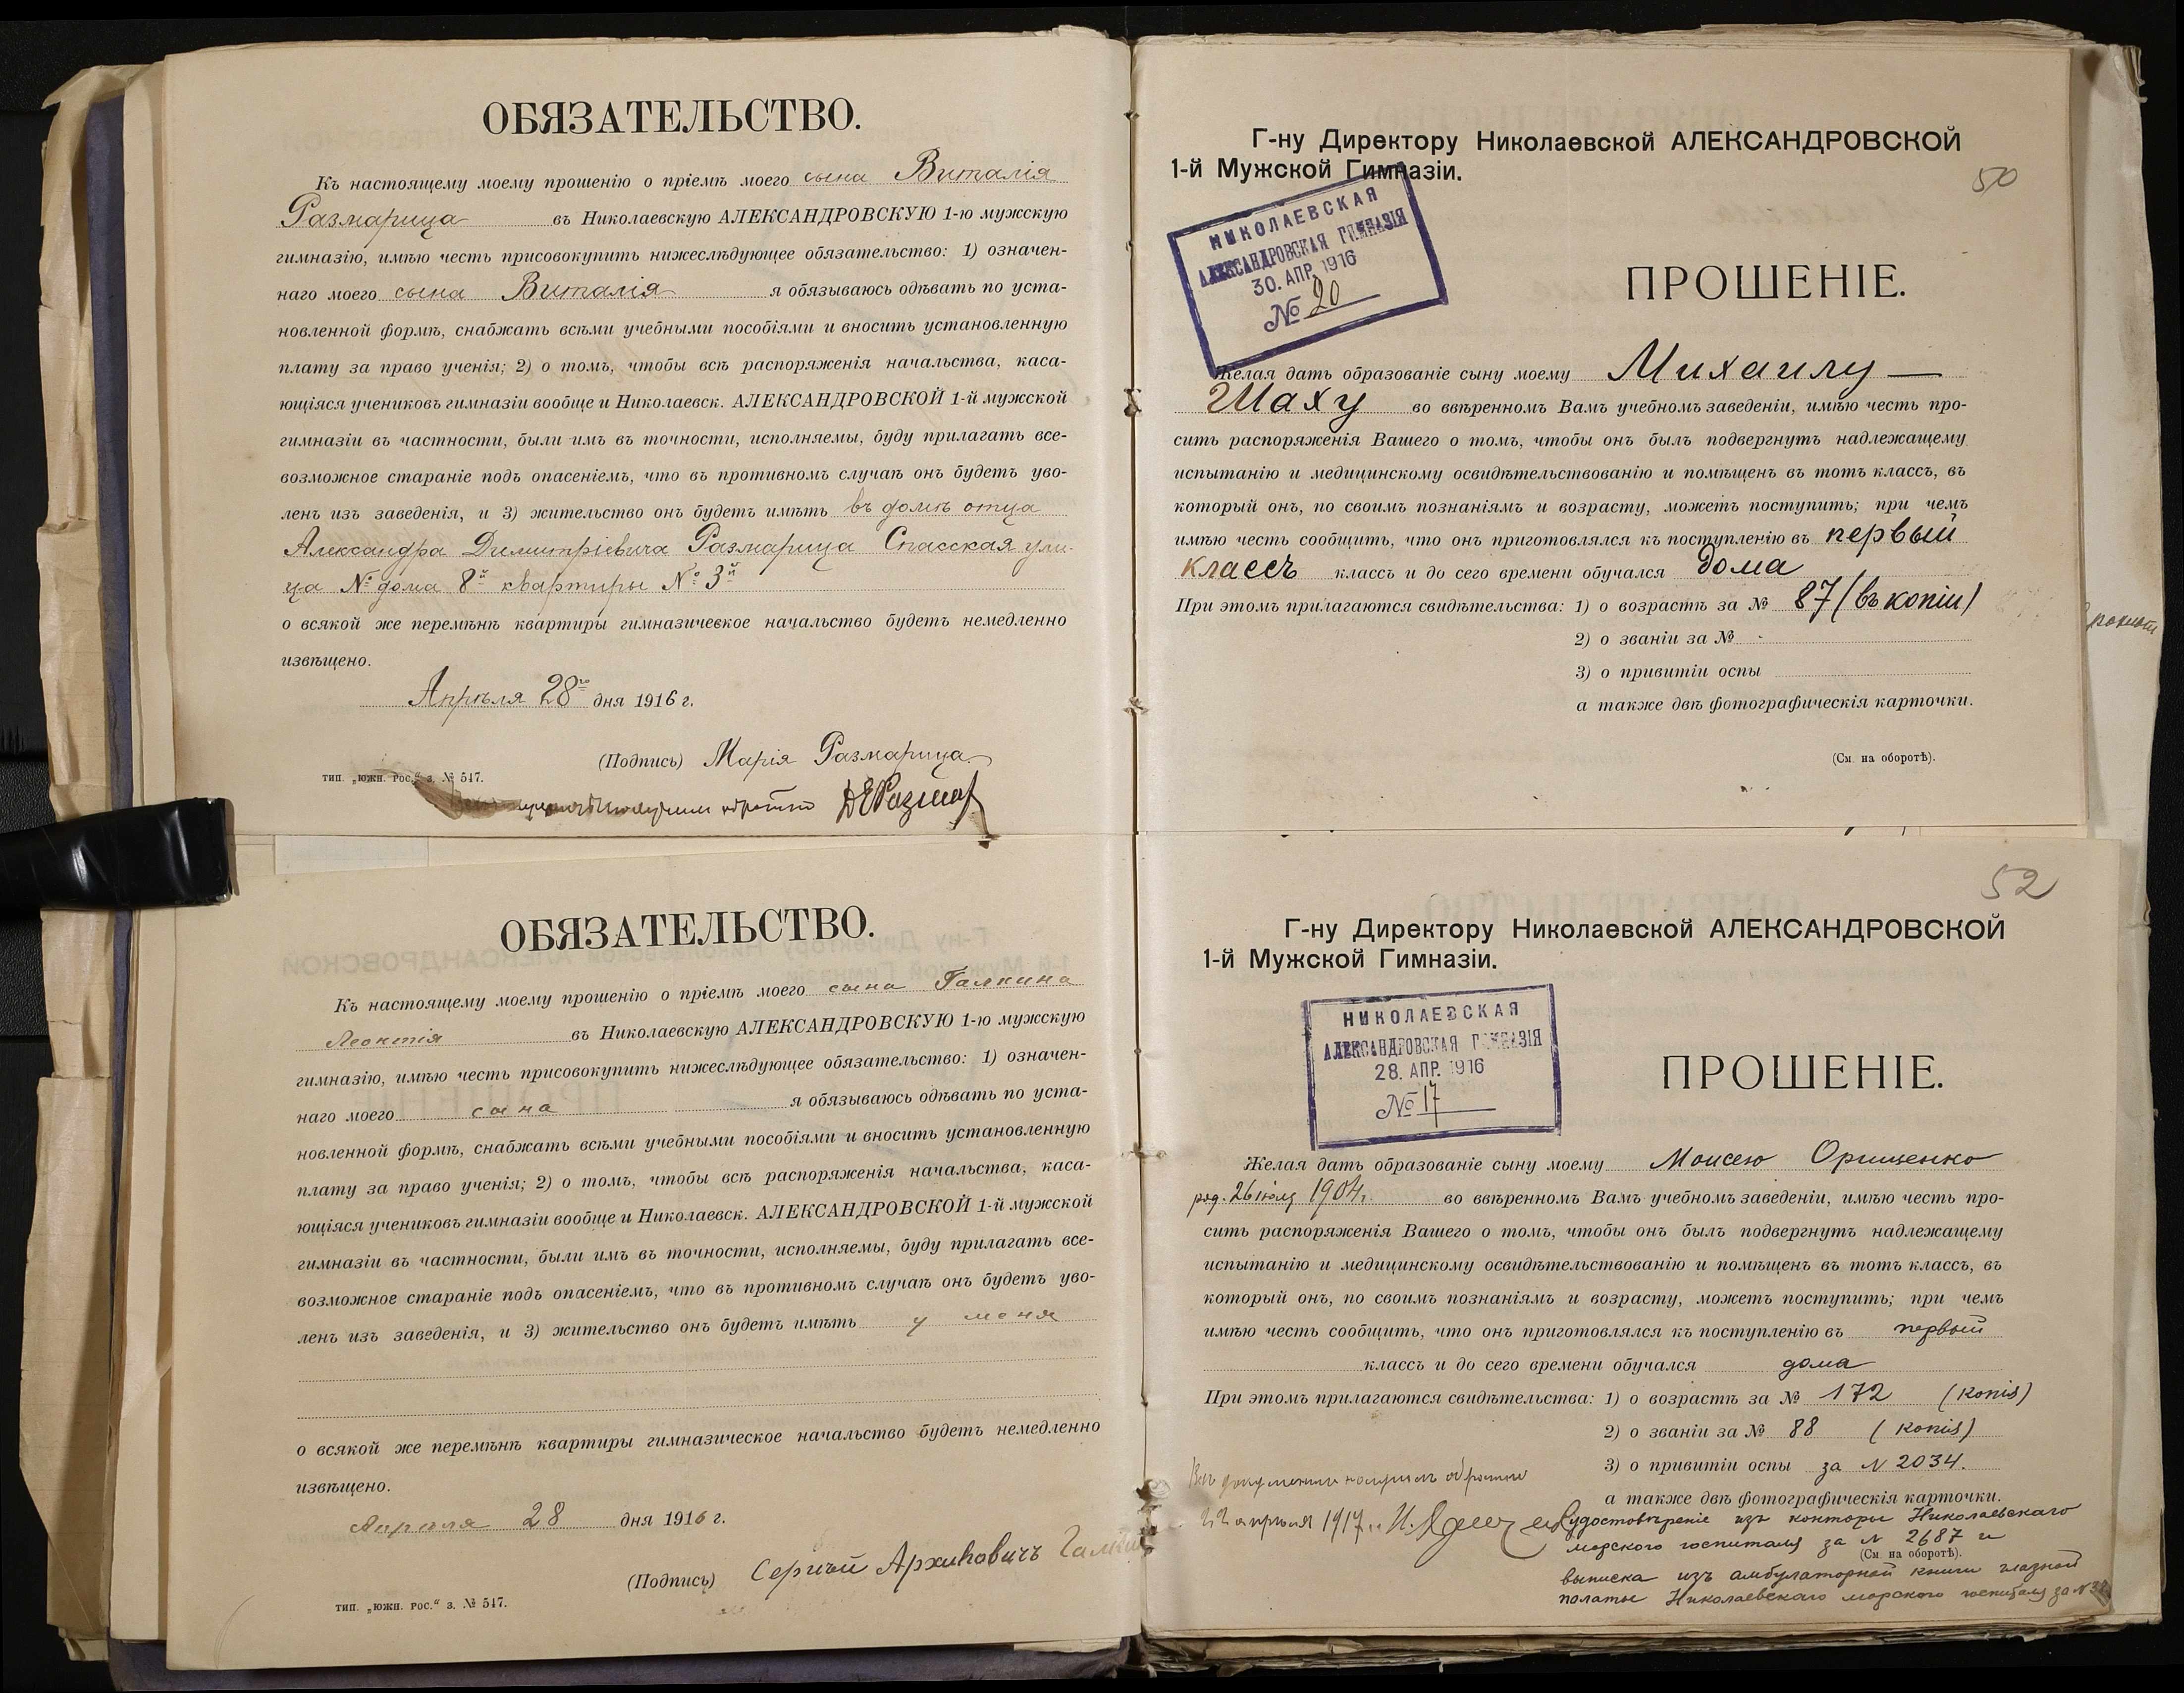 ОБЯЗАТЕЛЬСТВО.
Къ настоящему моему прошенію о пріемѣ моего сына Виталія
Размарица въ Николаевскую АЛЕКСАНДРОВСКУЮ 1-ю мужскую
гимназію, имѣю честь присовокупить нижеслѣдующее обязательство: 1) означен-
наго моего сына Виталія я обязываюсь одѣвать по уста-
новленной формѣ, снабжать всѣми учебными пособіями и вносить установленную
плату за право ученія; 2) о томъ, чтобы всѣ распоряженія начальства, каса-
ющіяся учениковъ гимназіи вообще и Николаевск. АЛЕКСАНДРОВСКОЙ 1-й мужской
гимназіи въ частности, были имъ въ точности, исполняемы, буду прилагать все-
возможное стараніе подъ опасеніемъ, что въ противномъ случаѣ онъ будетъ уво-
ленъ изъ заведенія, и 3) жительство онъ будетъ имѣть въ домѣ отца
Александра Димитріевича Размарица Спасская ули-
ца № дома 8й квартиры № 3й
о всякой же перемѣнѣ квартиры гимназическое начальство будетъ немедленно
извѣщено.
Апрѣля 28го дня 1916 г.
(Подпись) Марія Размарица
тип. „южн. рос.“ з. № 547.
обратно
Г-ну Директору Николаевской АЛЕКСАНДРОВСКОЙ
1-й Мужской Гимназіи.
50
НИКОЛАЕВСКАЯ
АЛЕКСАНДРОВСКАЯ ГИМНАЗІЯ
30. АПР. 1916
№ 20
ПРОШЕНІЕ.
Желая дать образованіе сыну моему Михаилу —
Шаху во ввѣренномъ Вамъ учебномъ заведеніи, имѣю честь про-
сить распоряженія Вашего о томъ, чтобы онъ былъ подвергнутъ надлежащему
испытанію и медицинскому освидѣтельствованію и помѣщенъ въ тотъ классъ, въ
который онъ, по своимъ познаніямъ и возрасту, можетъ поступить; при чемъ
имѣю честь сообщить, что онъ приготовлялся къ поступленію въ первый
классъ классъ и до сего времени обучался дома
При этомъ прилагаются свидѣтельства: 1) о возрастѣ за № 87 (въ копіи)
2) о званіи за №
3) о привитіи оспы
а также двѣ фотографическія карточки.
(См. на оборотѣ).
ОБЯЗАТЕЛЬСТВО.
Къ настоящему моему прошенію о пріемѣ моего сына Галкина
Леонтія въ Николаевскую АЛЕКСАНДРОВСКУЮ 1-ю мужскую
гимназію, имѣю честь присовокупить нижеслѣдующее обязательство: 1) означен-
наго моего сына я обязываюсь одѣвать по уста-
новленной формѣ, снабжать всѣми учебными пособіями и вносить установленную
плату за право ученія; 2) о томъ, чтобы всѣ распоряженія начальства, каса-
ющіяся учениковъ гимназіи вообще и Николаевск. АЛЕКСАНДРОВСКОЙ 1-й мужской
гимназіи въ частности, были имъ въ точности, исполняемы, буду прилагать все-
возможное стараніе подъ опасеніемъ, что въ противномъ случаѣ онъ будетъ уво-
ленъ изъ заведенія, и 3) жительство онъ будетъ имѣть у меня
о всякой же перемѣнѣ квартиры гимназическое начальство будетъ немедленно
извѣщено.
Апреля 28 дня 1916 г.
(Подпись) Сергѣй Архиповичъ Галкин
тип. „южн. рос.“ з. № 547.
52
Г-ну Директору Николаевской АЛЕКСАНДРОВСКОЙ
1-й Мужской Гимназіи.
НИКОЛАЕВСКАЯ
АЛЕКСАНДРОВСКАЯ ГИМНАЗІЯ
28. АПР. 1916
№ 17
ПРОШЕНІЕ.
Желая дать образованіе сыну моему Моисею Орищенко
род. 26 іюля 1904 г. во ввѣренномъ Вамъ учебномъ заведеніи, имѣю честь про-
сить распоряженія Вашего о томъ, чтобы онъ былъ подвергнутъ надлежащему
испытанію и медицинскому освидѣтельствованію и помѣщенъ въ тотъ классъ, въ
который онъ, по своимъ познаніямъ и возрасту, можетъ поступить; при чемъ
имѣю честь сообщить, что онъ приготовлялся къ поступленію въ первый
классъ и до сего времени обучался дома
При этомъ прилагаются свидѣтельства: 1) о возрастѣ за № 172 (копія)
2) о званіи за № 88 (копія)
3) о привитіи оспы за N 2034.
а также двѣ фотографическія карточки.
Всѣ документы получилъ обратно
22 апрѣля 1917 г.
удостовѣреніе изъ конторы Николаевскаго
морского госпиталя за N 2687 и
(См. на оборотѣ).
выписка изъ амбулаторной книги глазной
палаты Николаевскаго морского госпиталя за N